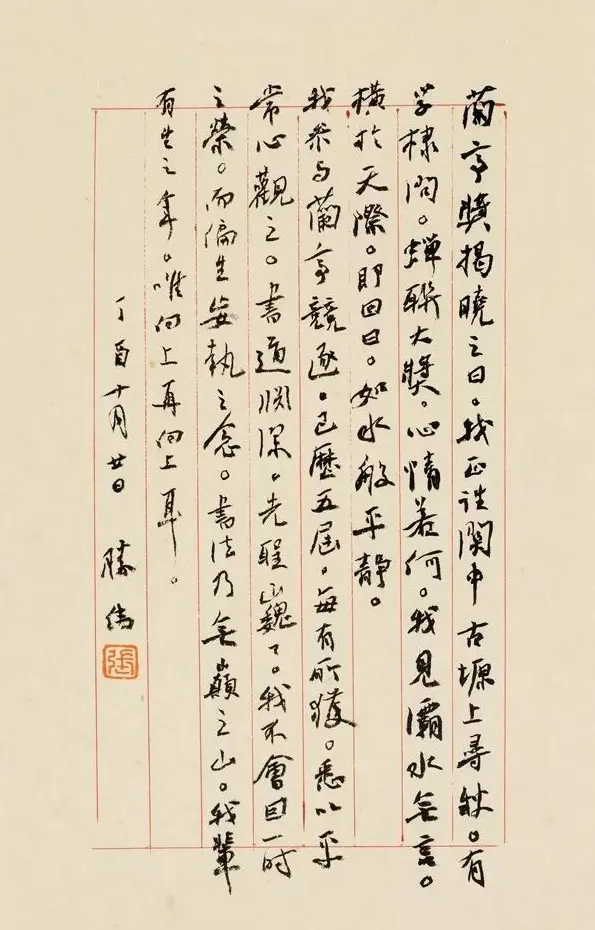 蘭亭獎揭曉之日。我正往關中古塬上尋。有
学棣問。蟬聯大獎。心情若何。我見灞水無言。
橫於天際。即回曰。如水般平靜。
我參与蘭亭競逐。已歷五届。每有所獲。悉以平
常心觀之。書道渊深。先聖巍々。我不會因一时
之榮。而偏生妄執之念。書法乃無巔之山。我輩
有生之年。唯向上再向上耳。
丁酉十月廿日 勝偉
張